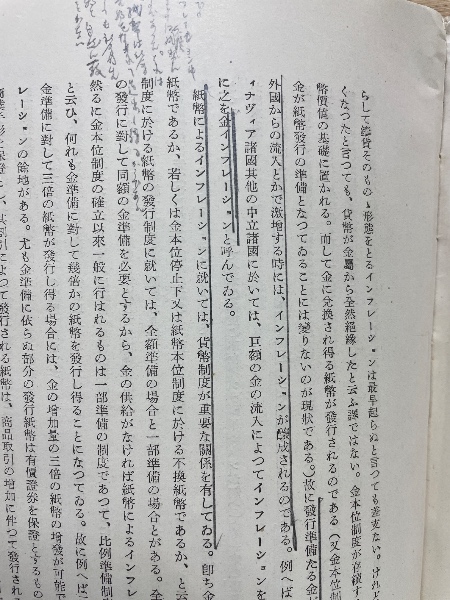 らして總貨そのものゝ形態をとるインフレーションは最早起らぬと言つても差支ない。けれど
くなつたと言つても、貨幣が金屬から全然絕緣したと云ふ譯ではない。金本位制度が存續す
幣價値の基礎に置かれる。而して金に兌換され得る紙幣が發行されるのである（又金本位制
金が紙幣發行の準備となつてゐることには變りないのが現狀である。）故に發行準備たる金が
外國からの流入とかで激增する時には、インフレーションが釀成されるのである。例へば
ィナヴィア諸國其他の中立諸國に於いては、巨額の金の流入によつてインフレーションを
に之を金インフレーションと呼んでゐる。
紙幣によるインフレーションに就いては、貨幣制度が重要な關係を有してゐる。卽ち金
紙幣であるか、若しくは金本位停止下又は紙幣本位制度に於ける不換紙幣であるか、と云
制度に於ける紙幣の發行制度に就いては、全額準備の場合と一部準備の場合とがある。全
の發行に對して同額の金準備を必要とするから、金の供給がなければ紙幣によるインフレ
然るに金本位制度の確立以來一般に行はれるものは一部準備の制度であつて、比例準備制
と云ひ、何れも金準備に對して幾倍かの紙幣を發行し得ることになつてゐる。故に例へば
金準備に對して三倍の紙幣が發行し得る場合には、金の增加量の三倍の紙幣の增發が可能で
レーションの餘地がある。尤も金準備に依らぬ部分の發行紙幣は有價證券を保證とするもの
によつて發行される紙幣は、商品取引の增加に伴つて發行され